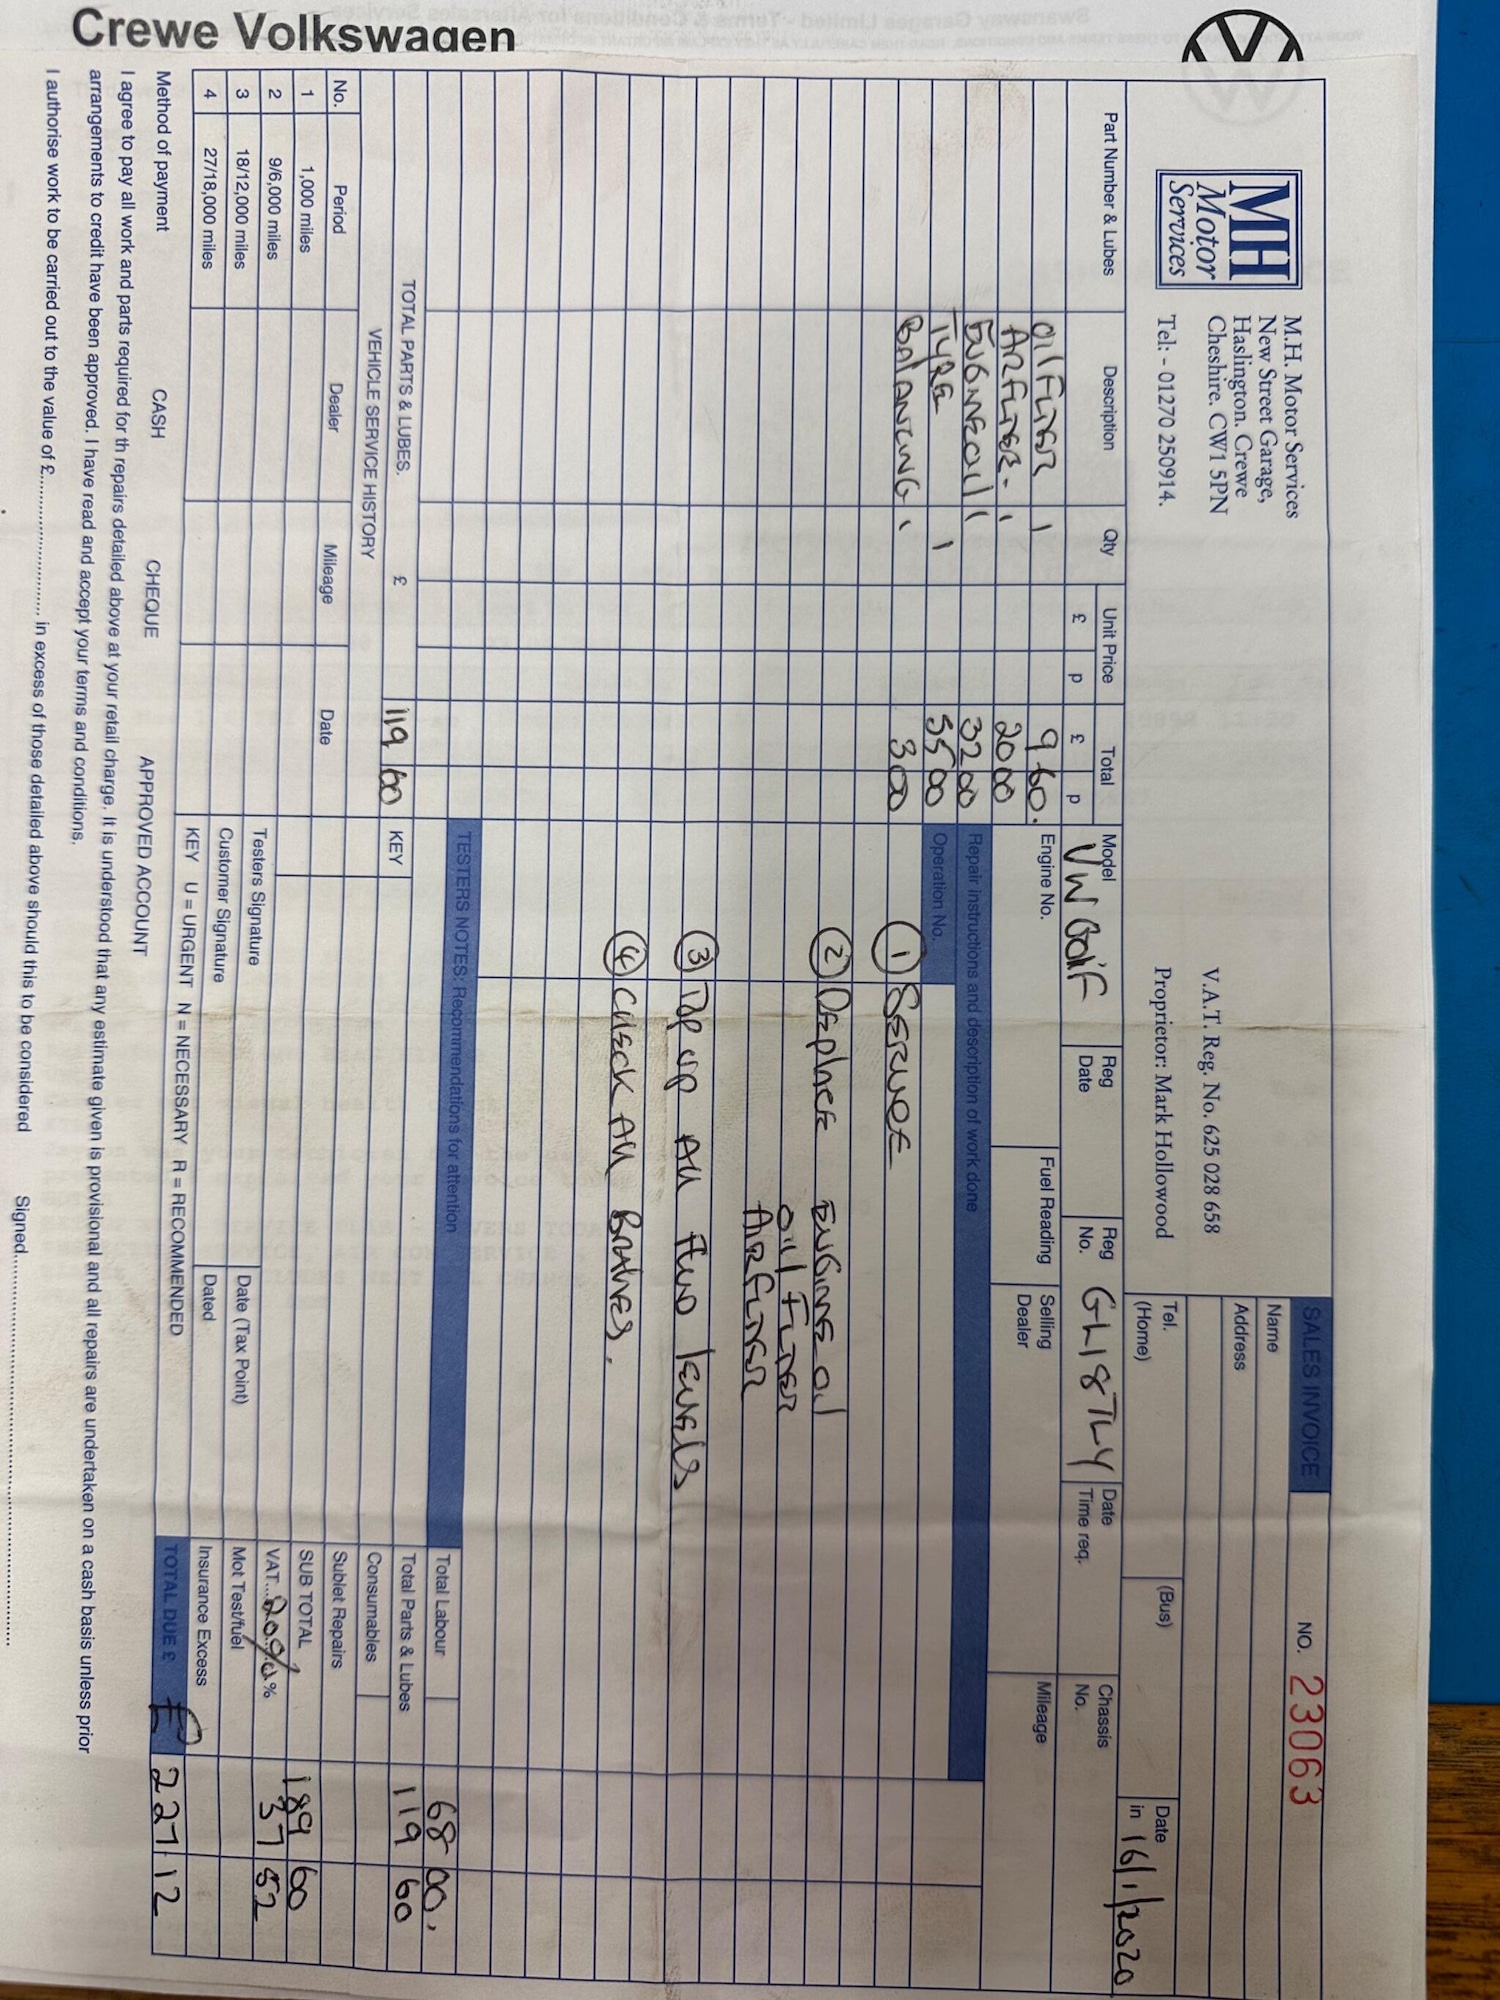 Crewe Volkswagen
MH
Motor
Services
M.H. Motor Services
New Street Garage,
Haslington. Crewe
Cheshire. CW1 5PN
Tel: - 01270 250914.
V.A.T. Reg. No. 625 028 658
Proprietor: Mark Hollowood
SALES INVOICE NO. 23063
Name
Address
Tel. (Home) (Bus) Date in 16/1/2020
Part Number & Lubes Description Qty Unit Price £ p Total £ p
Model VW Golf Reg Date Reg No. GL18TLY Date Time req. Chassis No.
Engine No. Fuel Reading Selling Dealer Mileage
Oil Filter 1 9 60.
Air Filter. 1 20 00
Engine oil 1 32 00
Tyre 1 55 00
Balancing 1 3 00
Repair instructions and description of work done
Operation No.
① Service
② Replace Engine oil
oil Filter
Air Filter
③ Top up All Fluid levels
④ Check All Brakes.
TESTERS NOTES: Recommendations for attention
TOTAL PARTS & LUBES. £ 119 60
KEY
VEHICLE SERVICE HISTORY
No. Period Dealer Mileage Date
1 1,000 miles
2 9/6,000 miles
3 18/12,000 miles
4 27/18,000 miles
Testers Signature Date (Tax Point)
Customer Signature Dated
KEY U = URGENT N = NECESSARY R = RECOMMENDED
Total Labour 68 00.
Total Parts & Lubes 119 60
Consumables
Sublet Repairs
SUB TOTAL 189 60
VAT...20%% 37 52
Mot Test/fuel
Insurance Excess
TOTAL DUE £ £ 227 12
Method of payment CASH CHEQUE APPROVED ACCOUNT
I agree to pay all work and parts required for th repairs detailed above at your retail charge. It is understood that any estimate given is provisional and all repairs are undertaken on a cash basis unless prior
arrangements to credit have been approved. I have read and accept your terms and conditions.
I authorise work to be carried out to the value of £.................... in excess of those detailed above should this to be considered Signed............................................